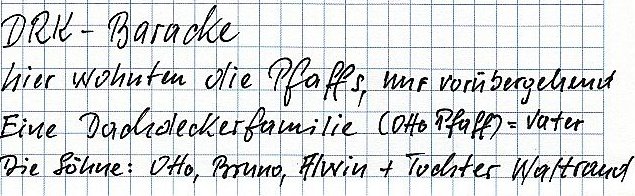 DRK-Baracke
hier wohnten die Pfaffs, nur vorübergehend
Eine Dachdeckerfamilie (Otto Pfaff) = Vater
Die Söhne: Otto, Bruno, Alwin + Tochter Waltraud